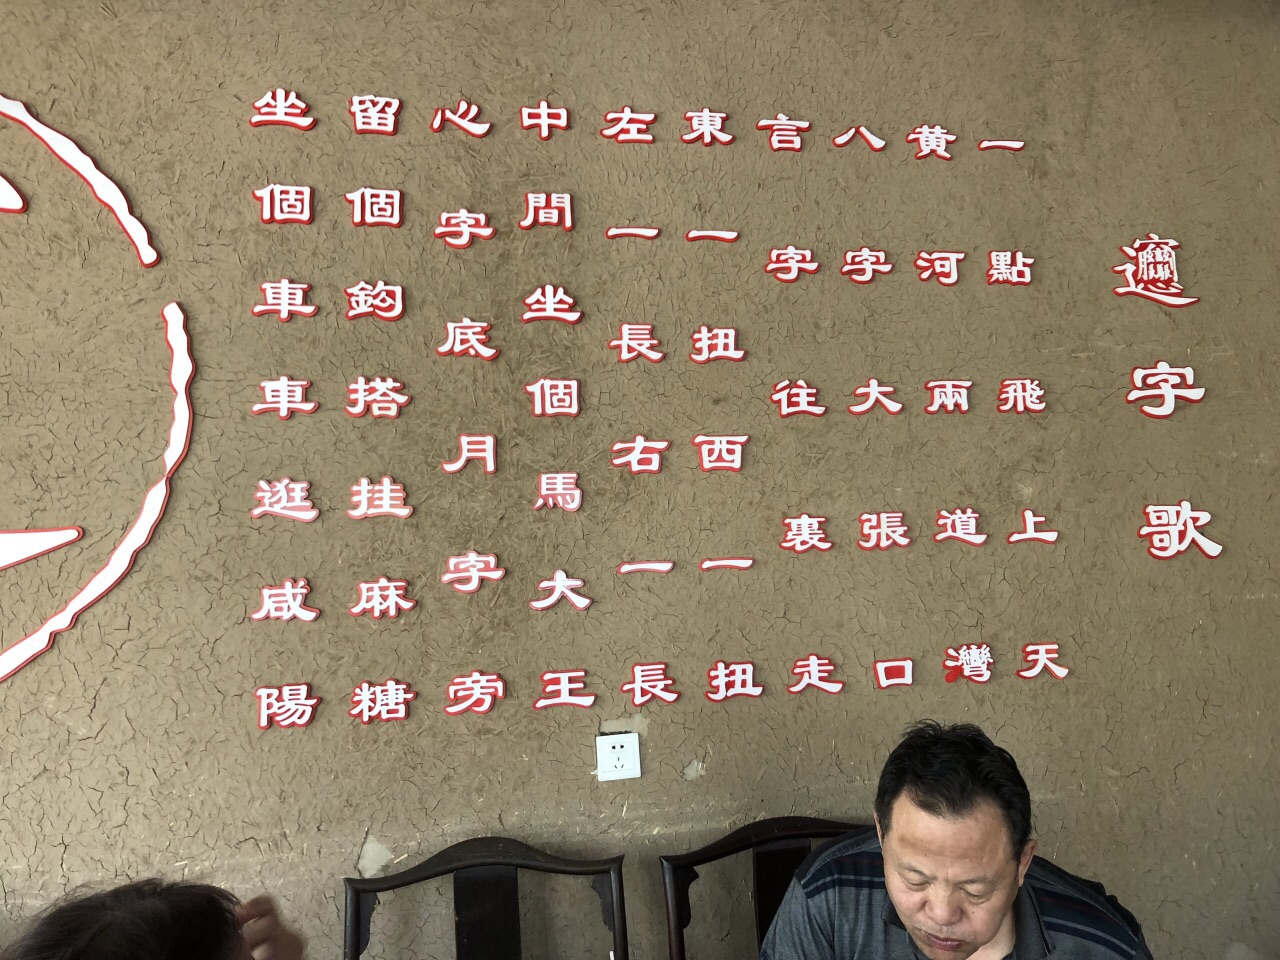 𰻞字歌
一點飛上天
黄河兩道灣
八字大張口
言字往裏走
東一扭西一扭
左一長右一長
中間坐個馬大王
心字底月字旁
留個鈎搭挂麻糖
坐個車車逛咸陽